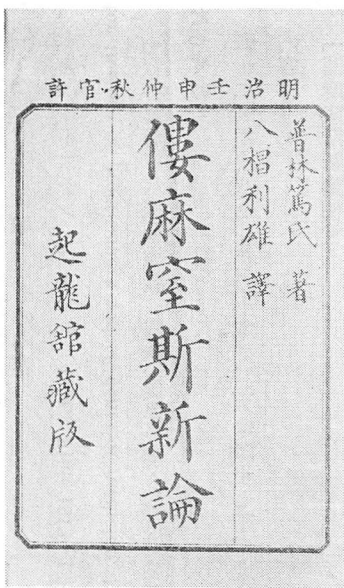 明治壬申仲秋官許
普林篤氏 著
八椙利雄 譯
僂麻窒斯新論
起龍舘藏版